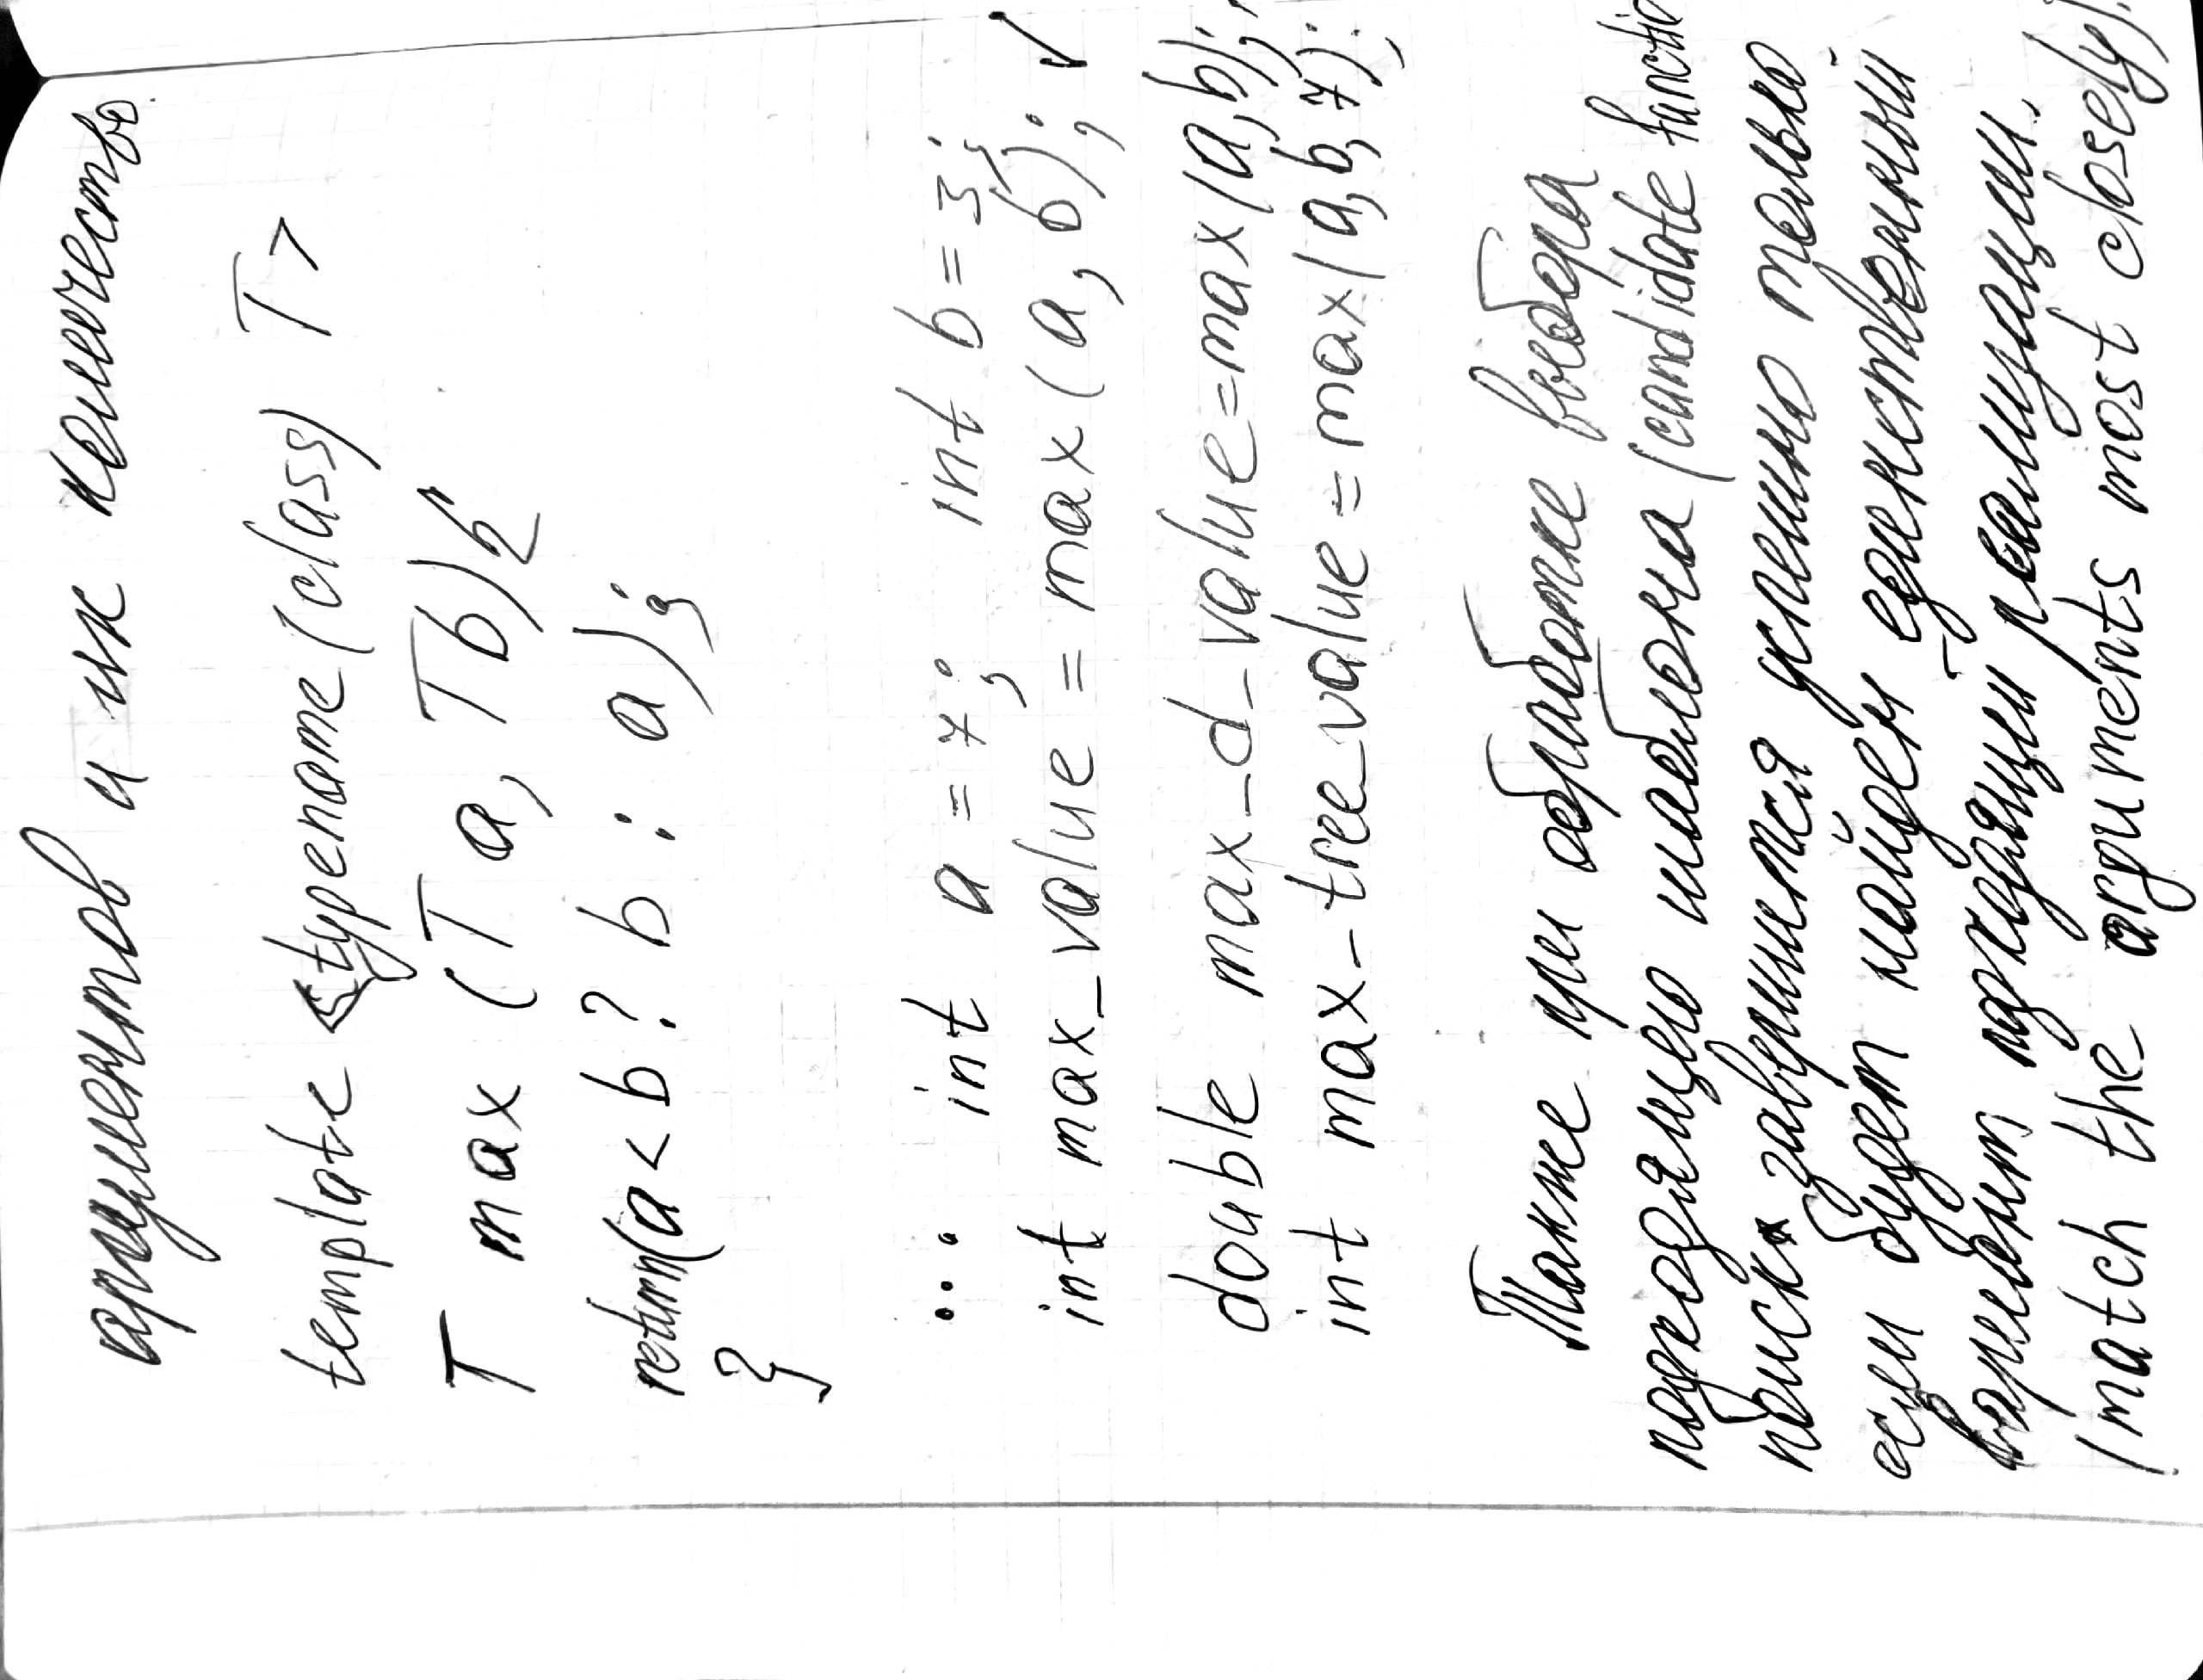 аргументов и их количество.
template <typename (class) T>
T max (T a, T b) {
return (a < b ? b : a);
}
... int a = 7; int b = 3;
int max_value = max (a, b); ✓
double max_d_value = max (a, b);
int max_tree_value = max (a, b, 7);
Также при обработке выбора
подходящего шаблона (candidate functio
поиск завершится успешно только
если будет найден единственный
вариант подходящий реализации.
(match the arguments most closely).